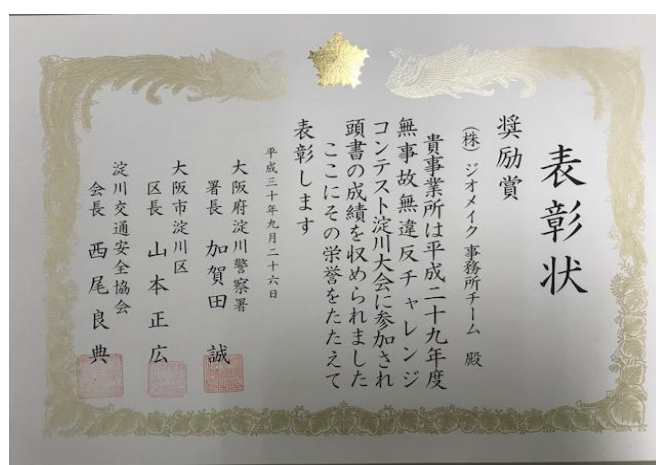 表彰状
奨励賞
(株)ジオメイク 事務所チーム 殿
貴事業所は平成二十九年度
無事故無違反チャレンジ
コンテスト淀川大会に参加され
頭書の成績を収められました
ここにその栄誉をたたえて
表彰します
平成三十年九月二十六日
大阪府淀川警察署
署長 加賀田 誠
大阪市淀川区
区長 山本正広
淀川交通安全協会
会長 西尾良典